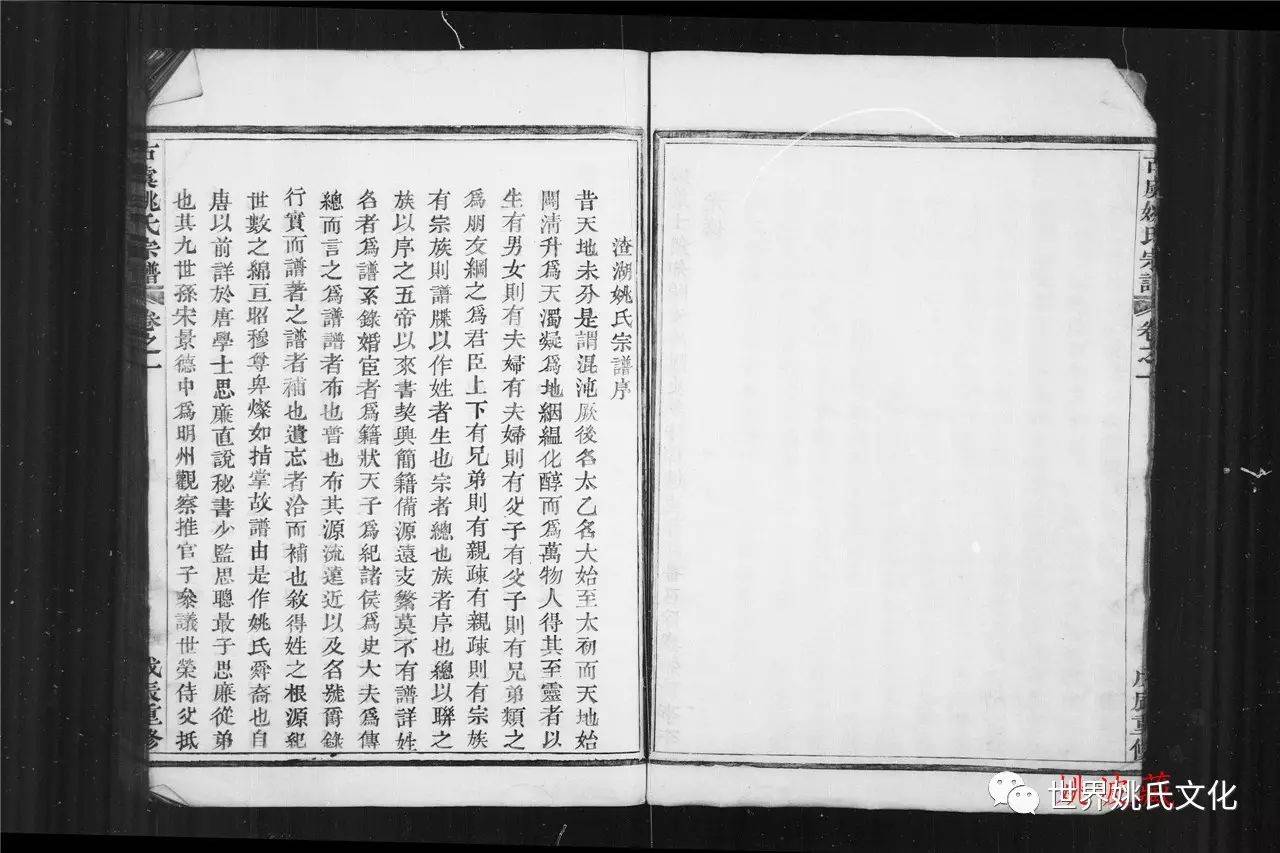 渣湖姚氏宗譜序
昔天地未分是謂混沌厥後名太乙名大始至太初而天地始
闢清升爲天濁凝爲地絪緼化醇而爲萬物人得其至靈者以
生有男女則有夫婦有夫婦則有父子有父子則有兄弟類之
爲朋友綱之爲君臣上下有兄弟則有親疎有親疎則有宗族
有宗族則譜牒以作姓者生也宗者總也族者序也總以聯之
族以序之五帝以來書契興簡籍備源遠支繁莫不有譜詳姓
名者爲譜系錄婚宦者爲籍狀天子爲紀諸侯爲史大夫爲傳
總而言之爲譜譜者布也普也布其源流遠近以及名號爵錄
行實而譜著之譜者補也遺忘者洽而補也敘得姓之根源紀
世數之綿亘昭穆尊卑燦如指掌故譜由是作姚氏舜裔也自
唐以前詳於唐學士思廉直說秘書少監思聰最子思廉從弟
也其九世孫宋景德中爲明州觀察推官子叅議世榮侍父抵
古虞姚氏宗譜 卷之一 戊辰重修
古虞姚氏宗譜 卷之一 戊辰重修
世界姚氏文化